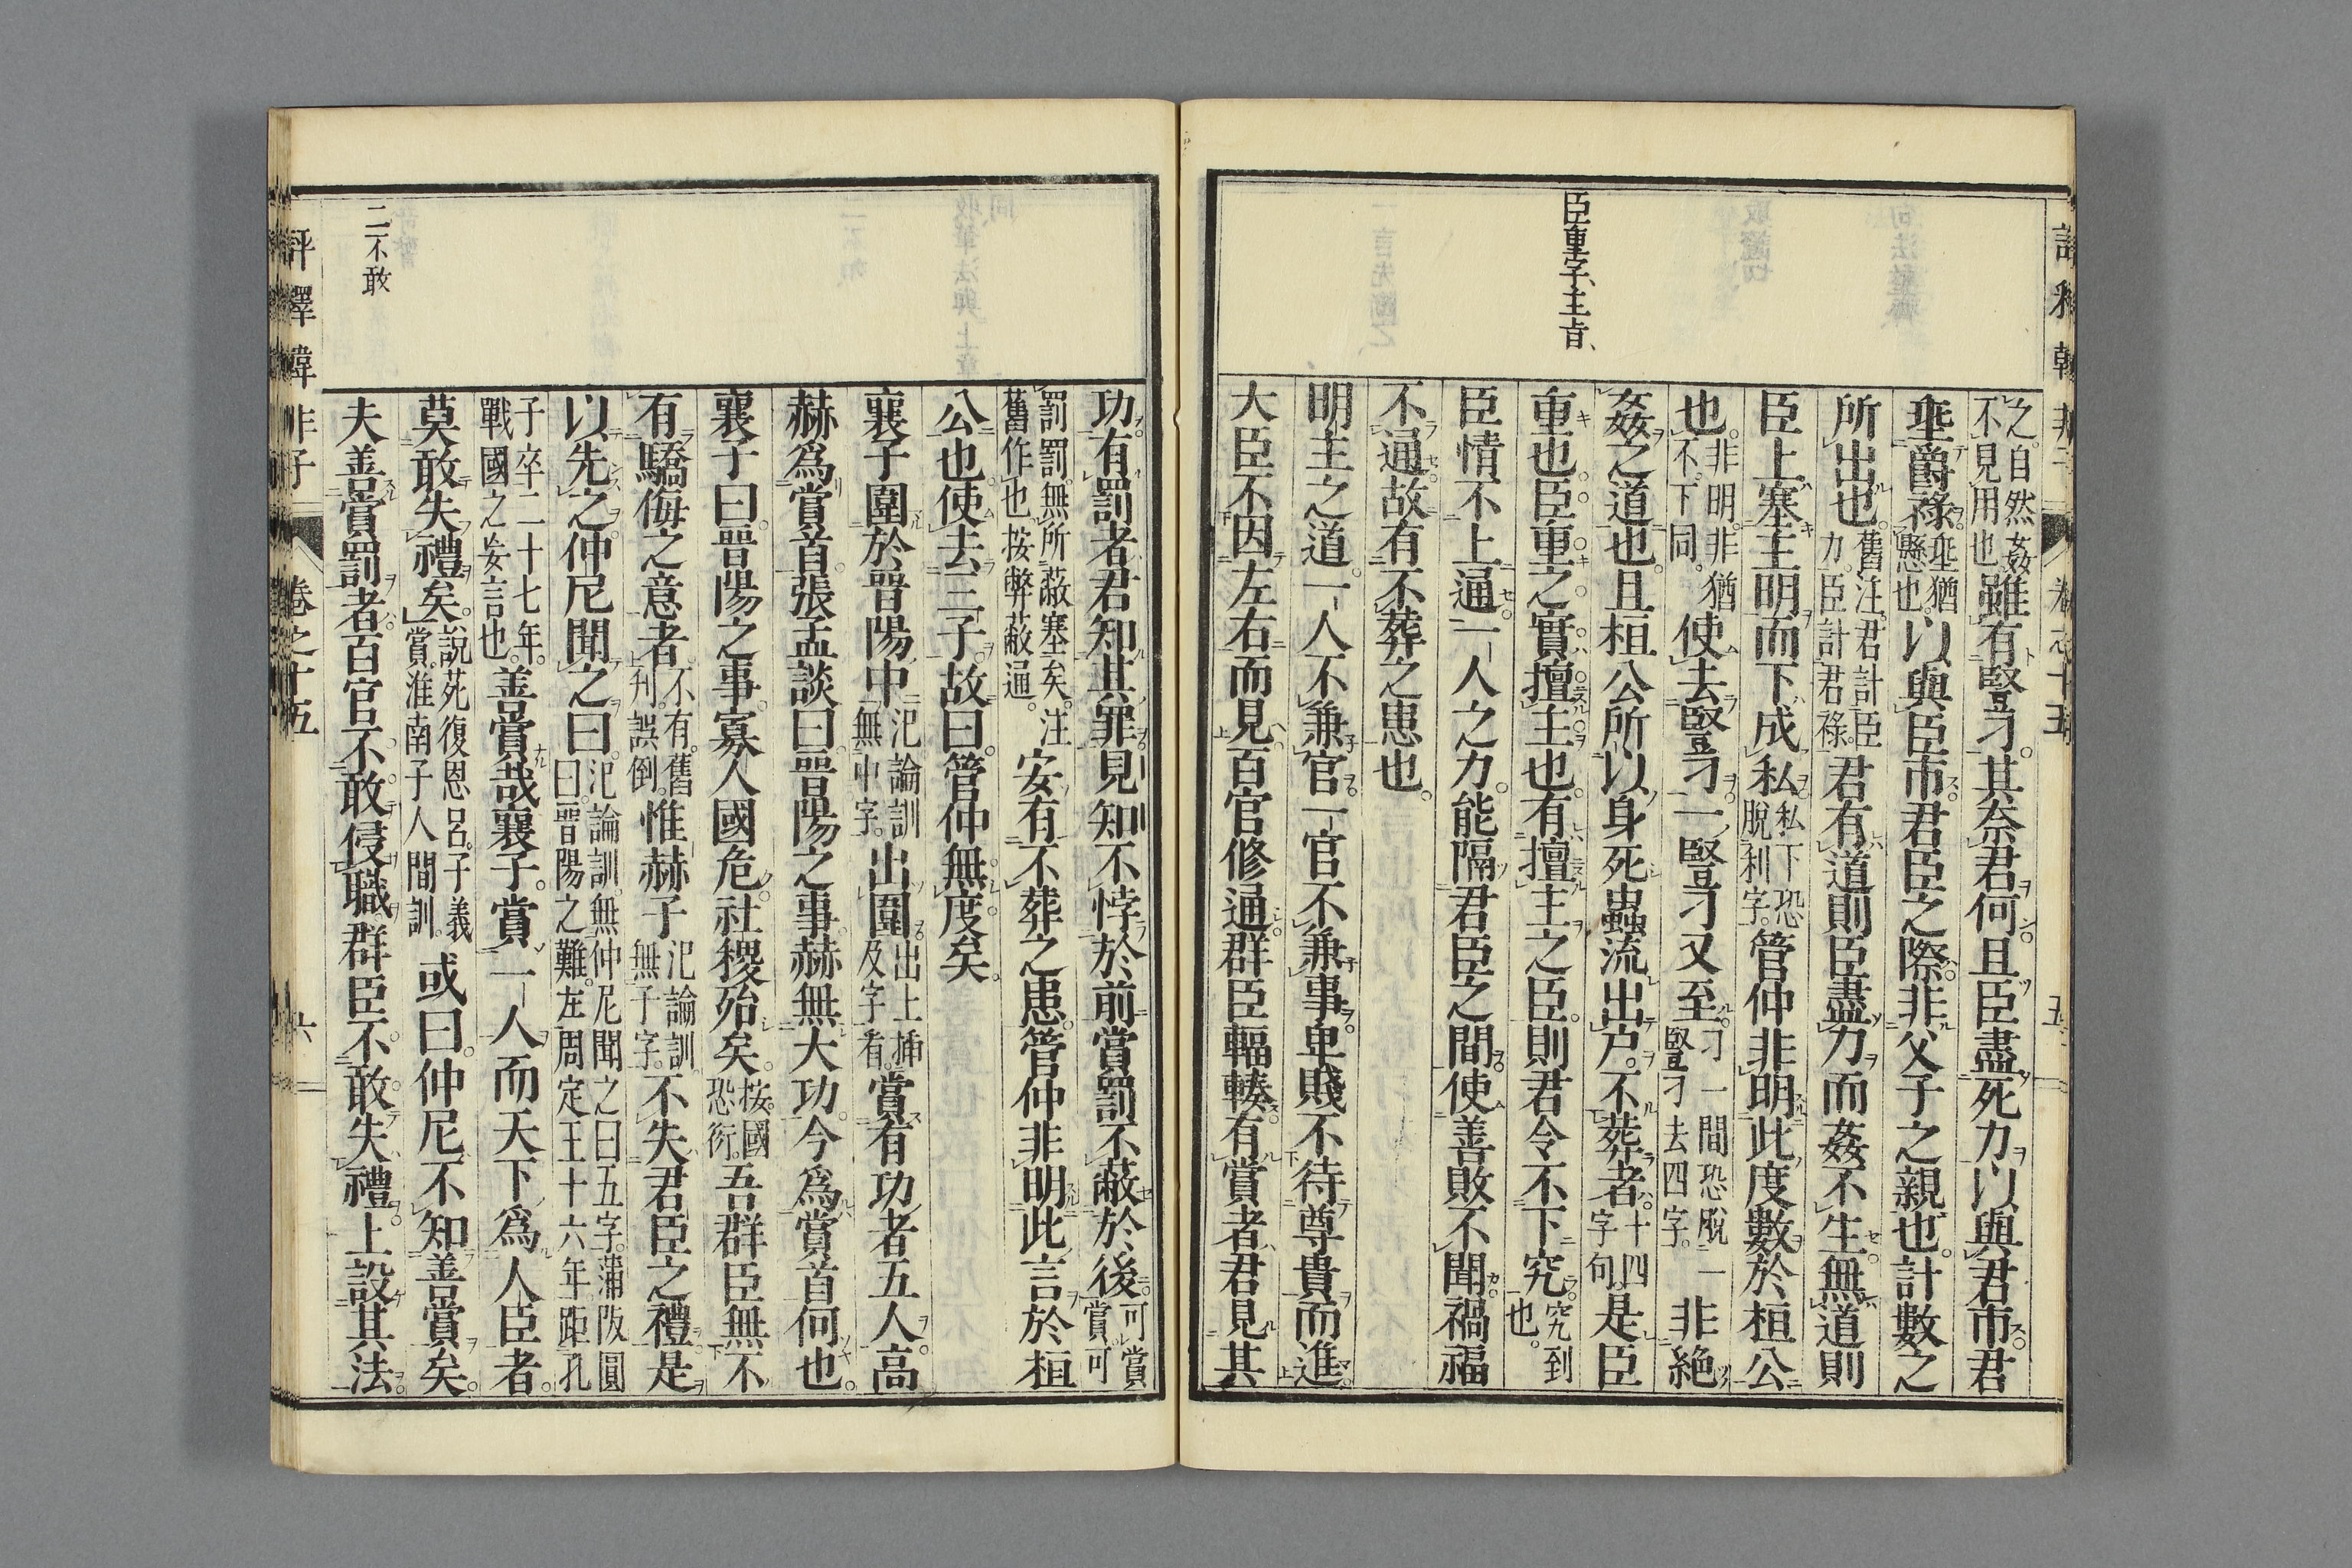 臣重字、主旨、
之。自然姦不見用也雖有豎刁。其奈君何。且臣盡死力以與君市。君
埀爵祿。埀猶懸也。以與臣市。君臣之際。非父子之親也。計數之
所出也。舊注。君計臣力。臣計君祿。君有道則臣盡力而姦不生。無道則
臣上塞主明而下成私。私下恐脫利字。管仲非明此度數於桓公
也。非明。非猶不。下同。使去豎刁。一豎刁又至。刁一間恐脫一豎刁去四字。非絶
姦之道也。且桓公所以身死蟲流出戶。不葬者。十四字句。是臣
重也。臣重之實。擅主也。有擅主之臣。則君令不下究。究到也。
臣情不上通。一人之力。能隔君臣之間。使善敗不聞。禍福
不通。故有不葬之患也。
明主之道。一人不兼官。一官不兼事。卑賤不待尊貴而進。
大臣不因左右而見。百官修通。群臣輻輳。有賞者君見其
功。有罰者君知其罪。見知不悖於前。賞罰不蔽於後。可賞賞。可
罰罰。無所蔽塞矣。注舊作也。按弊蔽通。安有不葬之患。管仲非明此言於桓
公也。使去三子。故曰。管仲無度矣。
襄子圍於晉陽中。氾論訓無中字。出圍。出上揷及字看。賞有功者五人。高
赫爲賞首。張孟談曰。晉陽之事。赫無大功。今爲賞首何也。
襄子曰。晉陽之事。寡人國危。社稷殆矣。按。國恐衍。吾群臣無不
有驕侮之意者。不有。舊刋誤倒。惟赫子氾論訓無子字。不失君臣之禮。是
以先之。仲尼聞之曰。氾論訓。無仲尼聞之曰五字。蒲阪圓曰。晉陽之難。左周定王十六年。距孔
子卒二十七年。戰國之妄言也。善賞哉襄子。賞一人。而天下爲人臣者。
莫敢失禮矣。說苑復恩。呂子義賞。淮南子人間訓。或曰。仲尼不知善賞矣。
夫善賞罰者。百官不敢侵職。群臣不敢失禮。上設其法。
二不敢
評釋韓非子
卷之十五
六